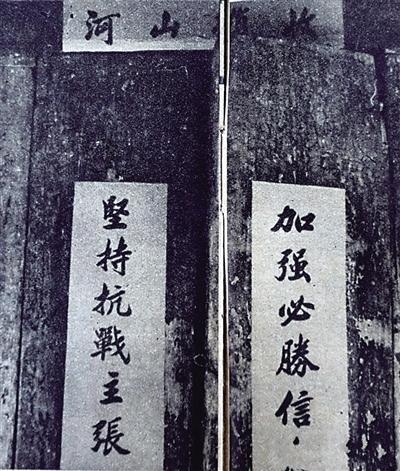 山河
加强必勝信
堅持抗戰主張